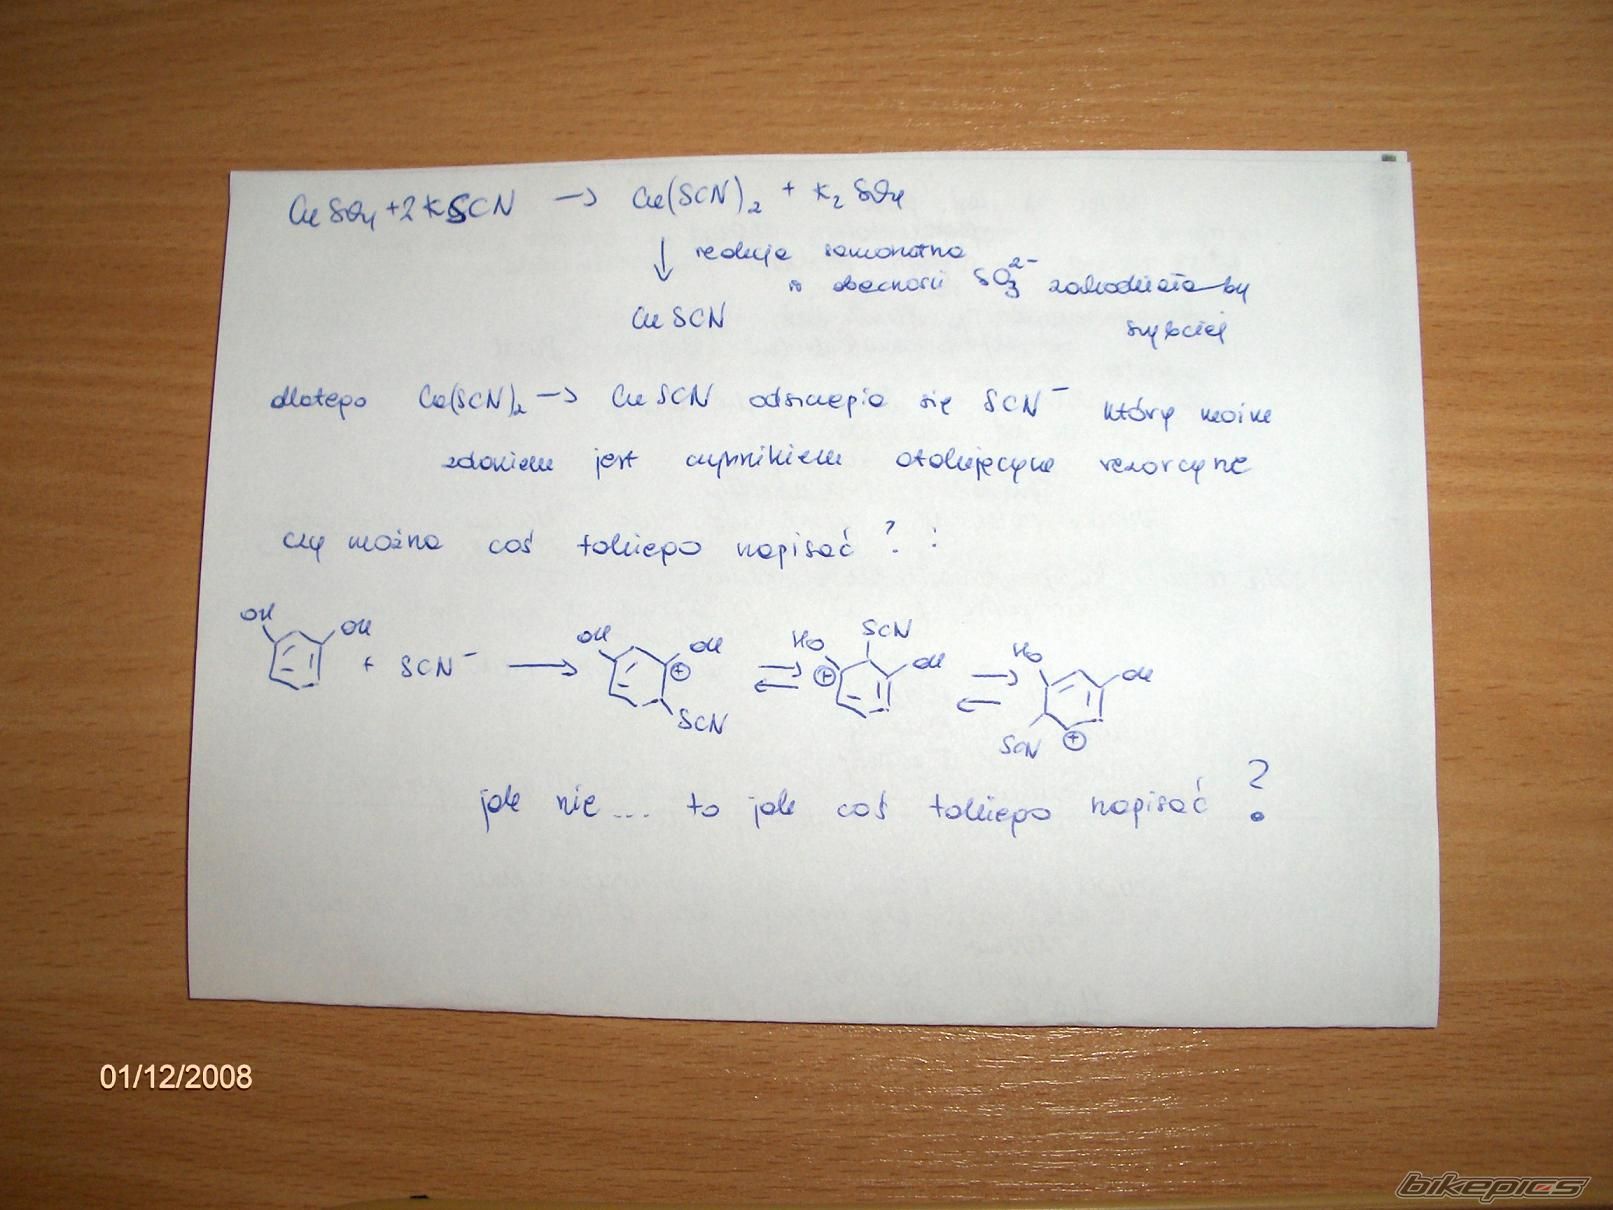 CuSO4 + 2KSCN → Cu(SCN)2 + K2SO4
↓ redukcja samoistna
w obecności SO3^2- zachodziłaby
CuSCN szybciej
dlatego Cu(SCN)2 → CuSCN odszczepia się SCN^- który moim
zdaniem jest czynnikiem atakującym rezorcynę
czy można coś takiego napisać ? :
OH OH + SCN^- → OH OH ⊕ SCN ⇌ HO SCN OH ⊕ ⇌ HO OH SCN ⊕
jak nie ... to jak coś takiego napisać ?
01/12/2008
bikepics